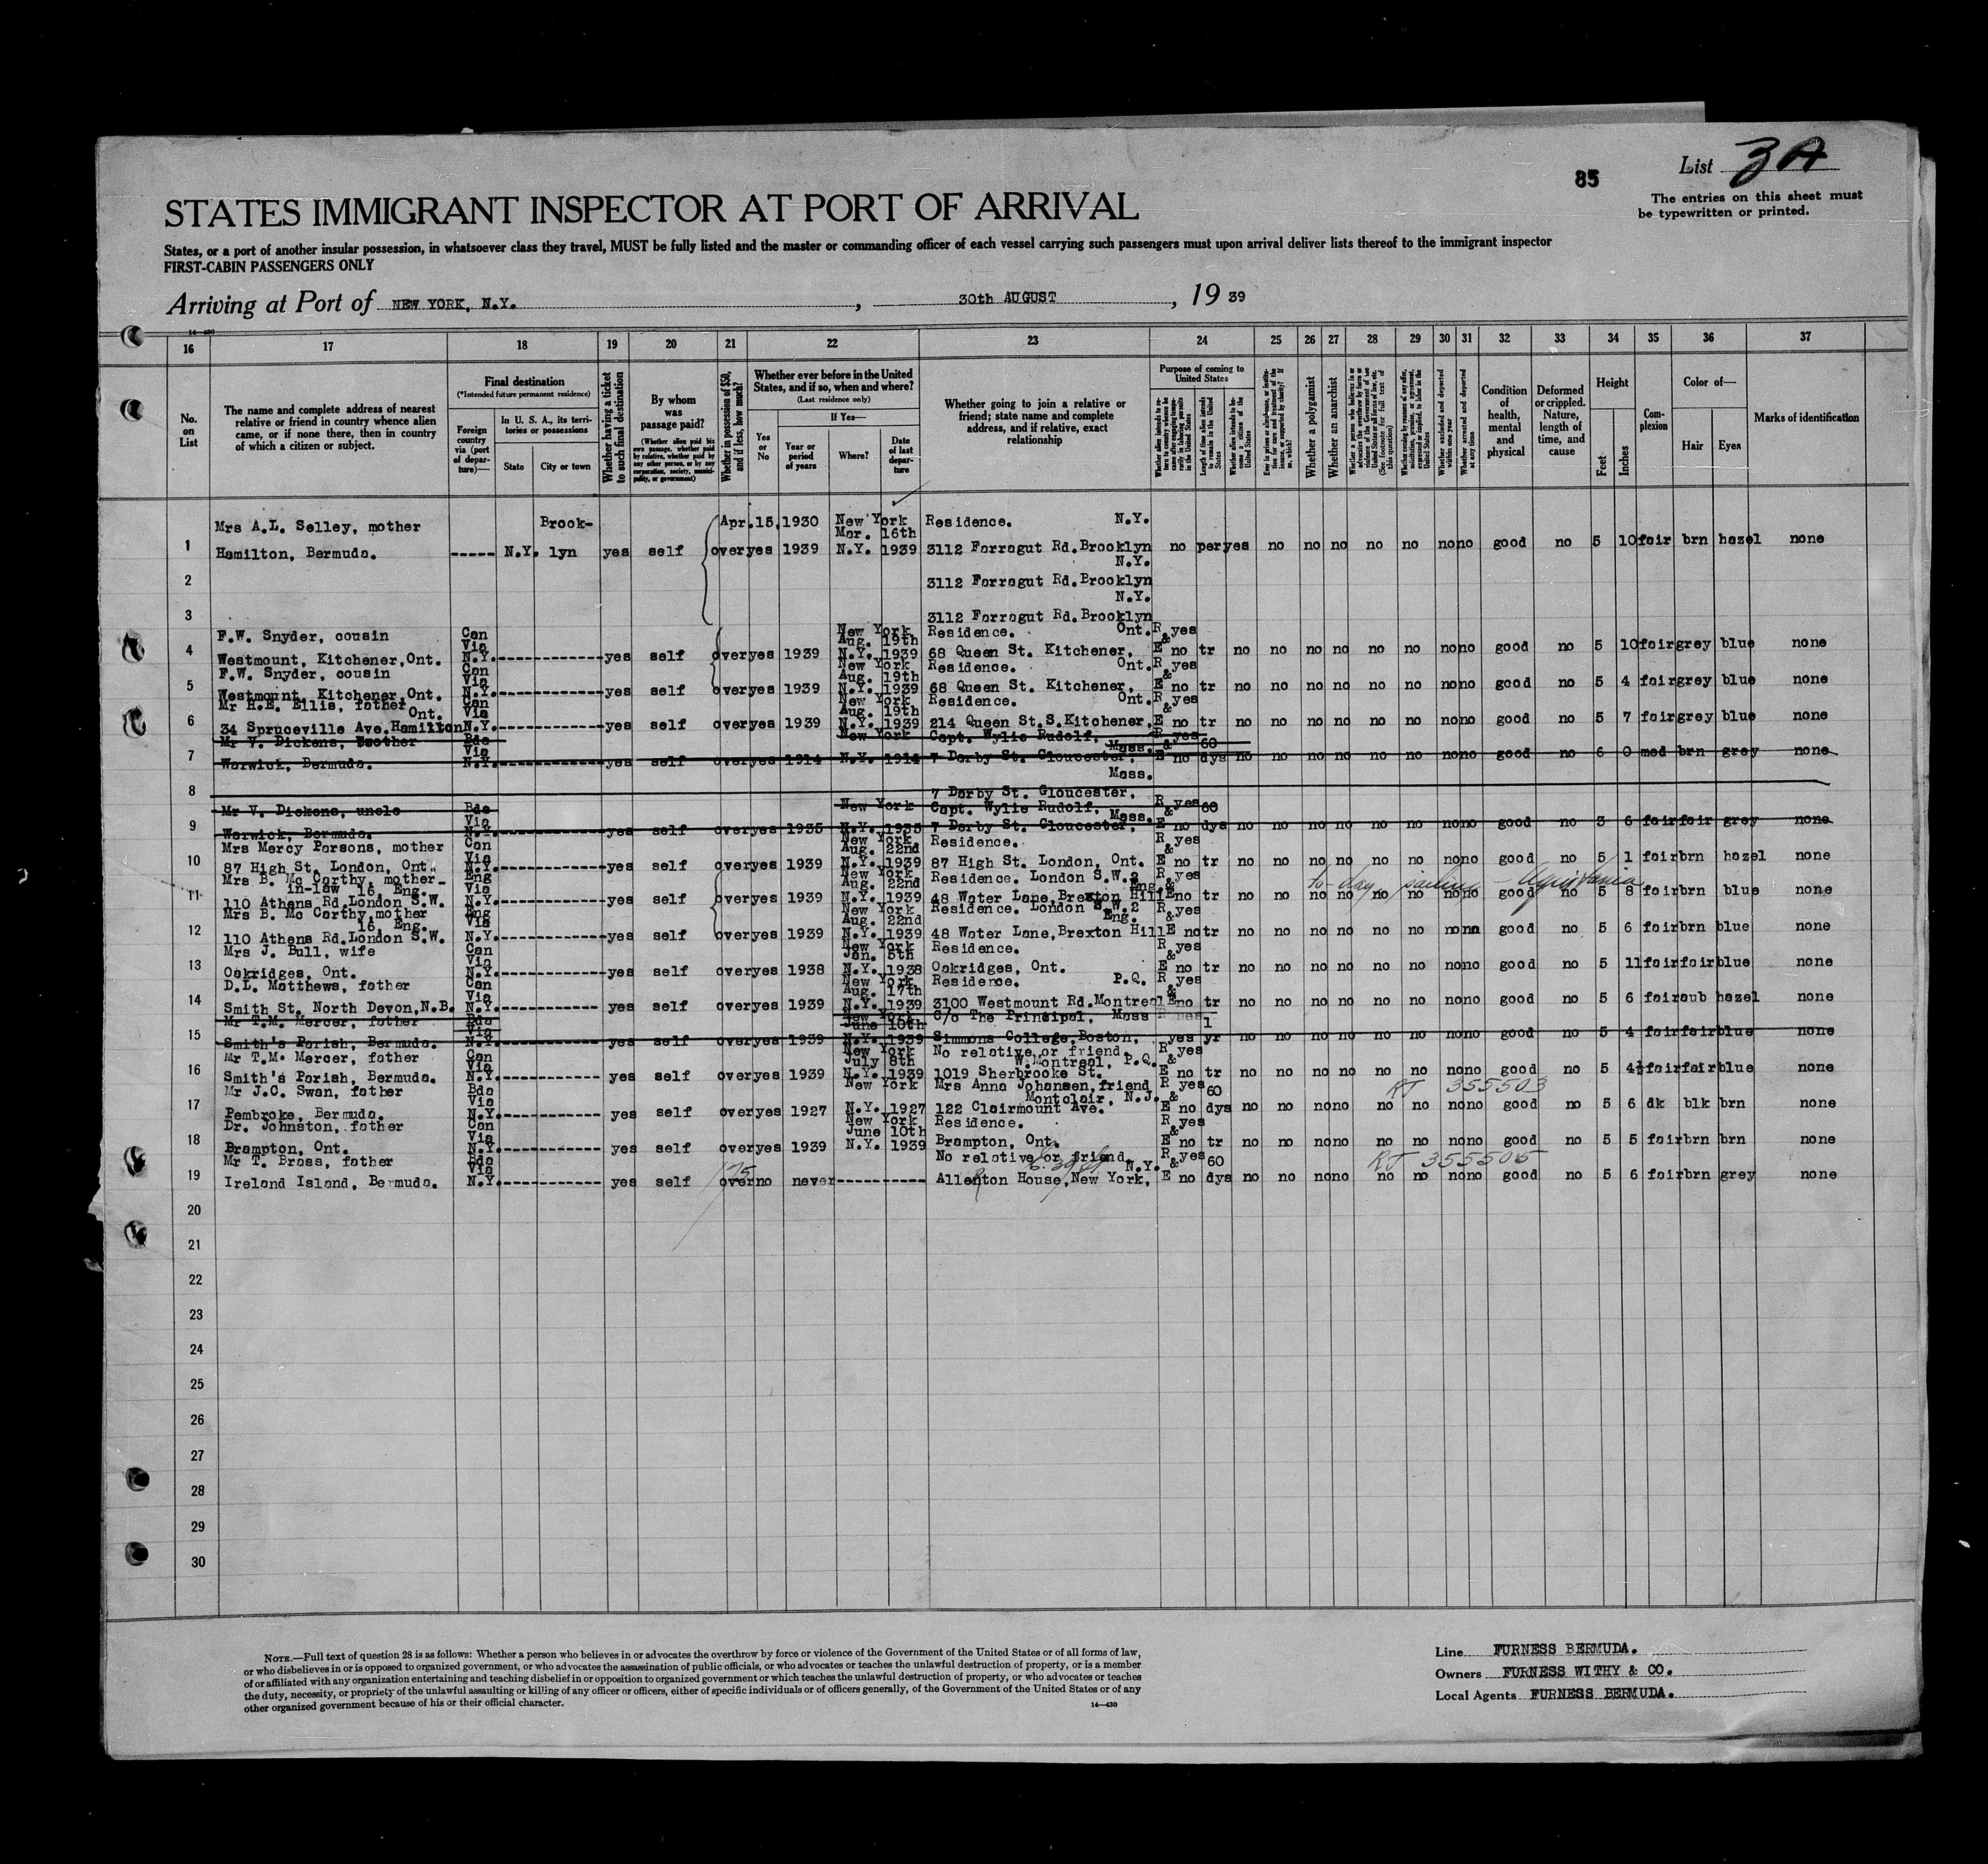 List 3A
85
The entries on this sheet must
be typewritten or printed.
STATES IMMIGRANT INSPECTOR AT PORT OF ARRIVAL
States, or a port of another insular possession, in whatsoever class they travel, MUST be fully listed and the master or commanding officer of each vessel carrying such passengers must upon arrival deliver lists thereof to the immigrant inspector
FIRST-CABIN PASSENGERS ONLY
Arriving at Port of NEW YORK, N.Y. , 30th AUGUST , 19 39
14-430
16 17 18 19 20 21 22 23 24 25 26 27 28 29 30 31 32 33 34 35 36 37
No. on List
The name and complete address of nearest relative or friend in country whence alien came, or if none there, then in country of which a citizen or subject.
Final destination
(*Intended future permanent residence)
Foreign country via (port of departure)—
In U. S. A., its territories or possessions
State
City or town
Whether having a ticket to such final destination
By whom was passage paid?
(Whether alien paid his own passage, whether paid by relative, whether paid by any other person, or by any corporation, society, municipality, or government)
Whether in possession of $50, and if less, how much?
Whether ever before in the United States, and if so, when and where?
(Last residence only)
If Yes—
Yes or No
Year or period of years
Where?
Date of last departure
Whether going to join a relative or friend; state name and complete address, and if relative, exact relationship
Purpose of coming to United States
Length of time alien intends to remain in the United States
Whether alien intends to become a citizen of the United States
Whether a polygamist
Whether an anarchist
Whether excluded and deported within one year
Whether arrested and deported at any time
Condition of health, mental and physical
Deformed or crippled. Nature, length of time, and cause
Height
Feet
Inches
Complexion
Color of—
Hair
Eyes
Marks of identification
Mrs A.L. Selley, mother Brook- Apr.15,1930 New York Residence. N.Y.
Mar. 16th
1 Hamilton, Bermuda. ----- N.Y. lyn yes self over yes 1939 N.Y. 1939 3112 Farragut Rd.Brooklyn no per yes no no no no no no no good no 5 10 fair brn hazel none
N.Y.
2 3112 Farragut Rd.Brooklyn
N.Y.
3 3112 Farragut Rd.Brooklyn
F.W. Snyder, cousin Can Via New York Aug. 19th Residence. Ont. R yes &
4 Westmount, Kitchener,Ont. N.Y.------------- yes self over yes 1939 N.Y. 1939 68 Queen St. Kitchener, E no tr no no no no no no no no good no 5 10 fair grey blue none
F.W. Snyder, cousin Can Via New York Aug. 19th Residence. Ont. R yes &
5 Westmount, Kitchener,Ont. N.Y.------------- yes self over yes 1939 N.Y. 1939 68 Queen St. Kitchener, E no tr no no no no no no no no good no 5 4 fair grey blue none
Mr H.E. Ellis, father Ont. Can Via New York Aug. 19th Residence. Ont. R yes &
6 34 Spruceville Ave.Hamilton N.Y.------------- yes self over yes 1939 N.Y. 1939 214 Queen St.S.Kitchener, E no tr no no no no no no no no good no 5 7 fair grey blue none
Mr V. Dickens, Bda Via New York Capt. Wylie Rudolf, Mass. R yes & 60
7 Warwick, Bermuda. N.Y.------------- yes self over yes 1914 N.Y. 1914 7 Derby St. Gloucester, E no dys no no no no no no no no good no 6 0 med brn grey none
Mass.
8 7 Derby St. Gloucester,
Mr V. Dickens, uncle Bda Via New York Capt. Wylie Rudolf, Mass. R yes & 60
9 Warwick, Bermuda. N.Y.------------- yes self over yes 1935 N.Y. 1935 7 Derby St. Gloucester, E no dys no no no no no no no no good no 3 6 fair fair grey none
Mrs Mercy Parsons, mother Can Via New York Aug. 22nd Residence. R yes &
10 87 High St. London, Ont. N.Y.------------- yes self over yes 1939 N.Y. 1939 87 High St. London, Ont. E no tr no no no no no no no no good no 5 1 fair brn hazel none
Mrs B. Mc Carthy, mother- in-law 16, Eng. Eng Via New York Aug. 22nd Residence. London S.W.2 Eng. R yes & to-day sailing - Aquitania
11 110 Athens Rd.London S.W. N.Y.------------- yes self over yes 1939 N.Y. 1939 48 Water Lane,Brexton Hill E no tr no no no no no no no no good no 5 8 fair brn blue none
Mrs B. Mc Carthy,mother 16, Eng. Eng Via New York Aug. 22nd Residence. London S.W.2 Eng. R yes &
12 110 Athens Rd.London S.W. N.Y.------------- yes self over yes 1939 N.Y. 1939 48 Water Lane,Brexton Hill E no tr no no no no no no no no good no 5 6 fair brn blue none
Mrs J. Bull, wife Can Via New York Jan. 5th Residence. R yes &
13 Oakridges, Ont. N.Y.------------- yes self over yes 1938 N.Y. 1938 Oakridges, Ont. E no tr no no no no no no no no good no 5 11 fair fair blue none
D.L. Matthews, father Can Via New York Aug. 17th Residence. P.Q. R yes &
14 Smith St. North Devon,N.B. N.Y.------------- yes self over yes 1939 N.Y. 1939 3100 Westmount Rd.Montreal E no tr no no no no no no no no good no 5 6 fair aub hazel none
Mr T.M. Mercer, father Bda Via New York June 10th C/o The Principal, Mass R yes 1
15 Smith's Parish, Bermuda. N.Y.------------- yes self over yes 1939 N.Y. 1939 Simmons College,Boston, yes yr no no no no no no no no good no 5 4 fair fair blue none
Mr T.M. Mercer, father Can Via New York July 8th No relative or friend W.Montreal, P.Q. R yes &
16 Smith's Parish, Bermuda. N.Y.------------- yes self over yes 1939 N.Y. 1939 1019 Sherbrooke St. E no tr no no no no no no no no good no 5 4½ fair fair blue none
Mr J.C. Swan, father Bda Via New York Mrs Anna Johansen,friend Montclair, N.J. R yes & 60 RJ 355503
17 Pembroke, Bermuda. N.Y.------------- yes self over yes 1927 N.Y. 1927 122 Clairmount Ave. E no dys no no no no no no no no good no 5 6 dk blk brn none
Dr. Johnston, father Can Via New York June 10th Residence. R yes &
18 Brampton, Ont. N.Y.------------- yes self over yes 1939 N.Y. 1939 Brampton, Ont. E no tr no no no no no no no no good no 5 5 fair brn brn none
Mr T. Brass, father Bda Via 175 No relative or friend N.Y. R yes & 60 RJ 355505
19 Ireland Island, Bermuda. N.Y.------------- yes self over no never----------- Allenton House,New York, E no dys no no no no no no no no good no 5 6 fair brn grey none
20
21
22
23
24
25
26
27
28
29
30
NOTE.—Full text of question 28 is as follows: Whether a person who believes in or advocates the overthrow by force or violence of the Government of the United States or of all forms of law,
or who disbelieves in or is opposed to organized government, or who advocates the assassination of public officials, or who advocates or teaches the unlawful destruction of property, or is a member
of or affiliated with any organization entertaining and teaching disbelief in or opposition to organized government or which teaches the unlawful destruction of property, or who advocates or teaches
the duty, necessity, or propriety of the unlawful assaulting or killing of any officer or officers, either of specific individuals or of officers generally, of the Government of the United States or of any
other organized government because of his or their official character.
14—430
Line FURNESS BERMUDA.
Owners FURNESS WITHY & CO.
Local Agents FURNESS BERMUDA.